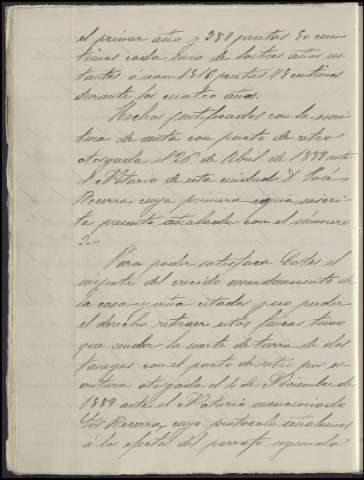 el primer año y 388 pesetas 30 cen-
timos cada uno de los tres años res-
tantes ó sean 1516 pesetas 73 centimos
durante los cuatro años.
Hechos justificados con la escri-
tura de venta con pacto de retro
otorgada el 26 de Abril de 1889 ante
el Notario de esta ciudad D. José
Becerra, cuya primera copia inscri-
ta presento señalada con el número
3.-
Para poder satisfacer Costas el
importe del crecido arrendamiento de
la casa y viña citadas y no perder
el derecho retraer estas fincas tuvo
que vender la suerte de tierra de dos
fanegas con el pacto de retro por es-
critura otorgada el 4 de Noviembre de
1889 ante el Notario mencionado
Becerra, cuyo protocolo señalamos
á los efectos del parrafo segundo